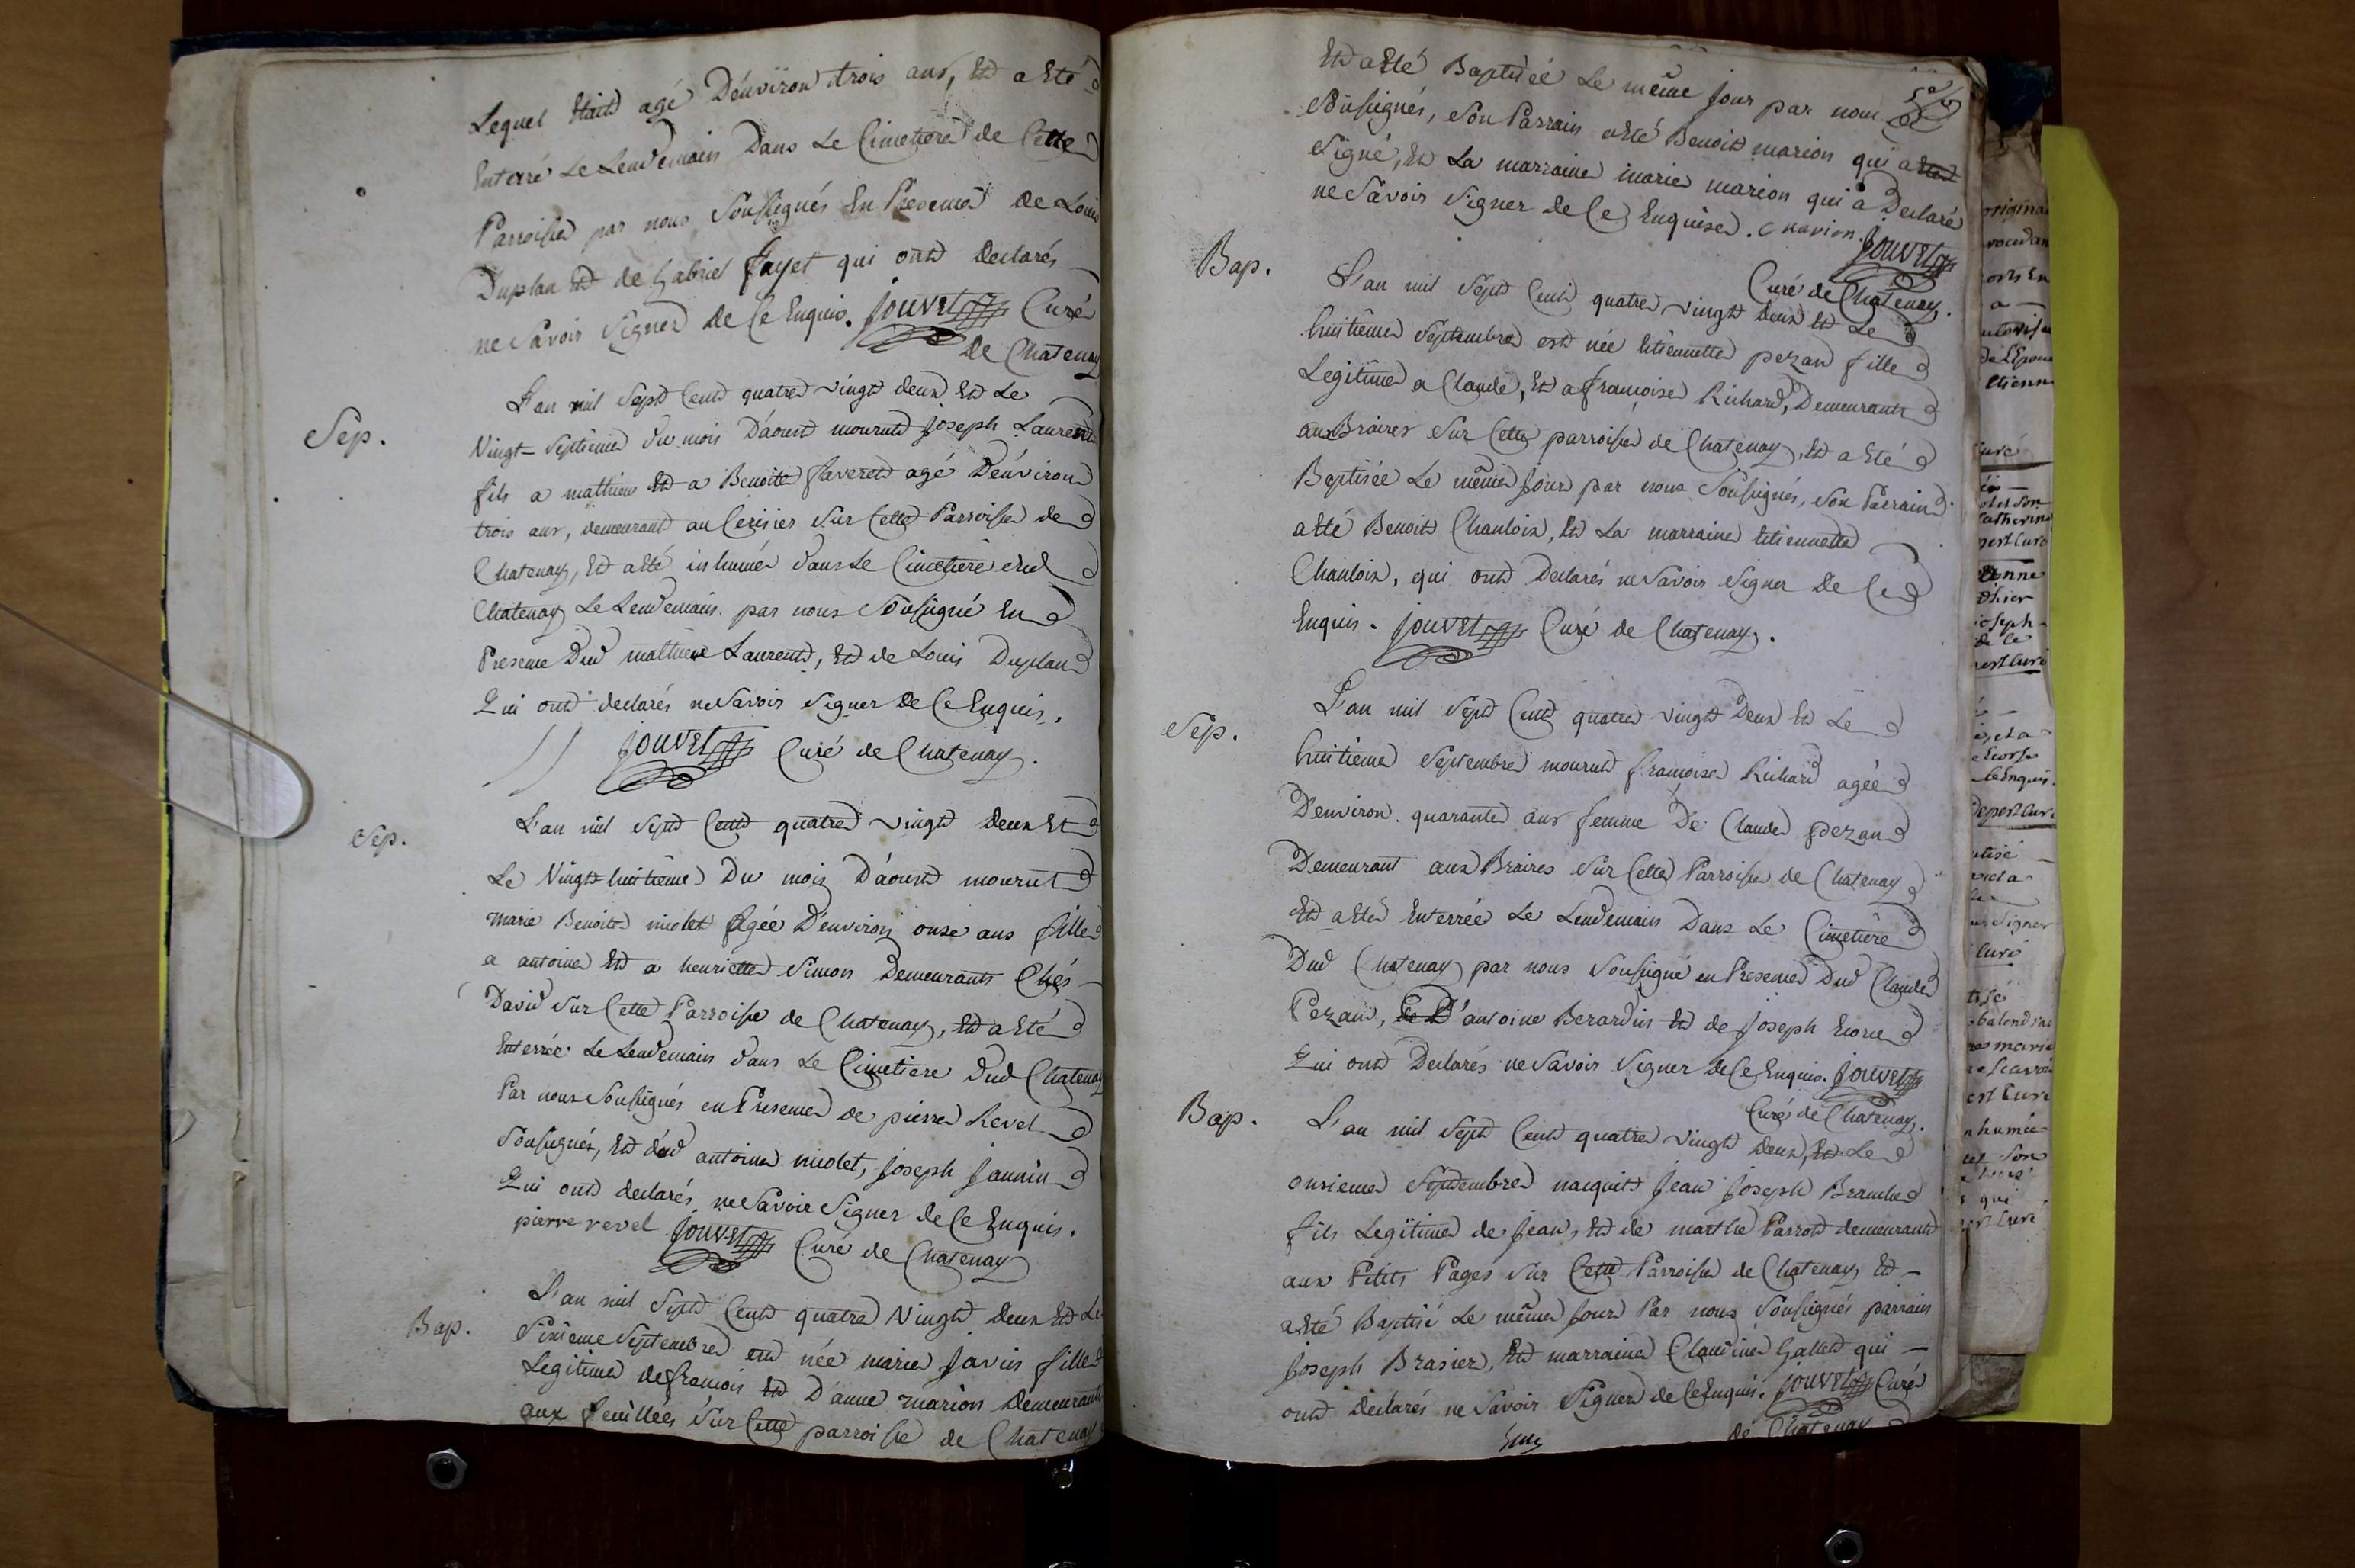 Lequel Etait agé D'énviron trois ans, Et a Eté
Enterré Le Lendemain Dans Le Cimetiere de Cette
Parroisse par nous Soussignés En Presence de Louis
Duplan Et de Gabriel fayet qui ont Declarés
ne Savoir Signer De Ce Enquis. Jouvet Curé
De Chatenay
L'an mil Sept Cent quatre vingt deux Et Le
Sep.
Vingt-Septieme du mois D'áoust mourut joseph Laurent
fils a mathieu Et a Benoite faveret agé D'énviron
trois ans, demeurant au Cerisier Sur Cette Parroisse de
Chatenay, Et a Eté inhumé dans Le Cimetiere dud
Chatenay Le Lendemain par nous Soussigné En
Presence Dud mathieu Laurent, Et de Louis Duplan
Qui ont declarés ne Savoir Signer De Ce Enquis.
Jouvet Curé de Chatenay.
L'an mil Sept Cent quatre vingt deux Et
Sep.
Le Vingt-huitieme Du mois D'áoust mourut
marie Benoite miolet Agée D'environ onze ans fille
a antoine Et a henriette Simon Demeurants Chés
David Sur Cette Parroisse de Chatenay, Et a Eté
Enterrée Le Lendemain dans Le Cimetiere Dud Chatenay
Par nous Soussignés en Presence de pierre Revel
Soussignés, Et dud antoine miolet, joseph Jannin
Qui ont declarés ne Savoir Signer de Ce Enquis.
pierre revel Jouvet Curé de Chatenay
L'an mil Sept Cent quatre Vingt Deux Et Le
Bap.
Sixieme Septembre est née marie Javin fille
Legitime de francois Et D'anne marion Demeurants
aux feuillées Sur Cette parroisse de Chatenay
Et a Eté Baptisée Le même jour par nous
Soussignés, Son Parrain a Eté Benoit marion qui a
Signé, Et La marraine marie marion qui a Declaré
ne Savoir Signer de Ce Enquise. marion. Jouvet
Curé de Chatenay.
Bap.
L'an mil Sept Cent quatre vingt deux Et Le
huitieme Septembre est née Etiennette pezan fille
Legitime a Claude, Et a francoise Richard, Demeurants
aux Braires Sur Cette parroisse de Chatenay, Et a Eté
Baptisée Le même jour par nous Soussignés, Son Parrain
a Eté Benoit Chanloix, Et La marraine Etiennette
Chanloix, qui ont Declarés ne Savoir Signer De Ce
Enquis. Jouvet Curé de Chatenay.
L'an mil Sept Cent quatre vingt Deux Et Le
Sep.
huitieme Septembre mourut francoise Richard agée
D'environ quarante ans femme De Claude pezan
Demeurant aux Braires Sur Cette Parroisse de Chatenay
Et a Eté Enterrée Le Lendemain Dans Le Cimetière
Dud Chatenay par nous Soussigné en Presence Dud Claude
Pezan, D'antoine Berardin Et de joseph
Qui ont Declarés ne Savoir Signer de Ce Enquis. Jouvet
Curé de Chatenay.
Bap.
L'an mil Sept Cent quatre vingt Deux, Et Le
onzieme Septembre nacquit Jean Joseph Branche
fils Legitime de Jean, Et de marthe Parrot demeurants
aux Petits Pagés Sur Cette Parroisse de Chatenay Et
a Eté Baptisé Le même jour Par nous Soussignés parrain
joseph Brasier, Et marraine Claudine Gallet qui
ont declarés ne Savoir Signer de Ce Enquis. Jouvet Curé
de Chatenay